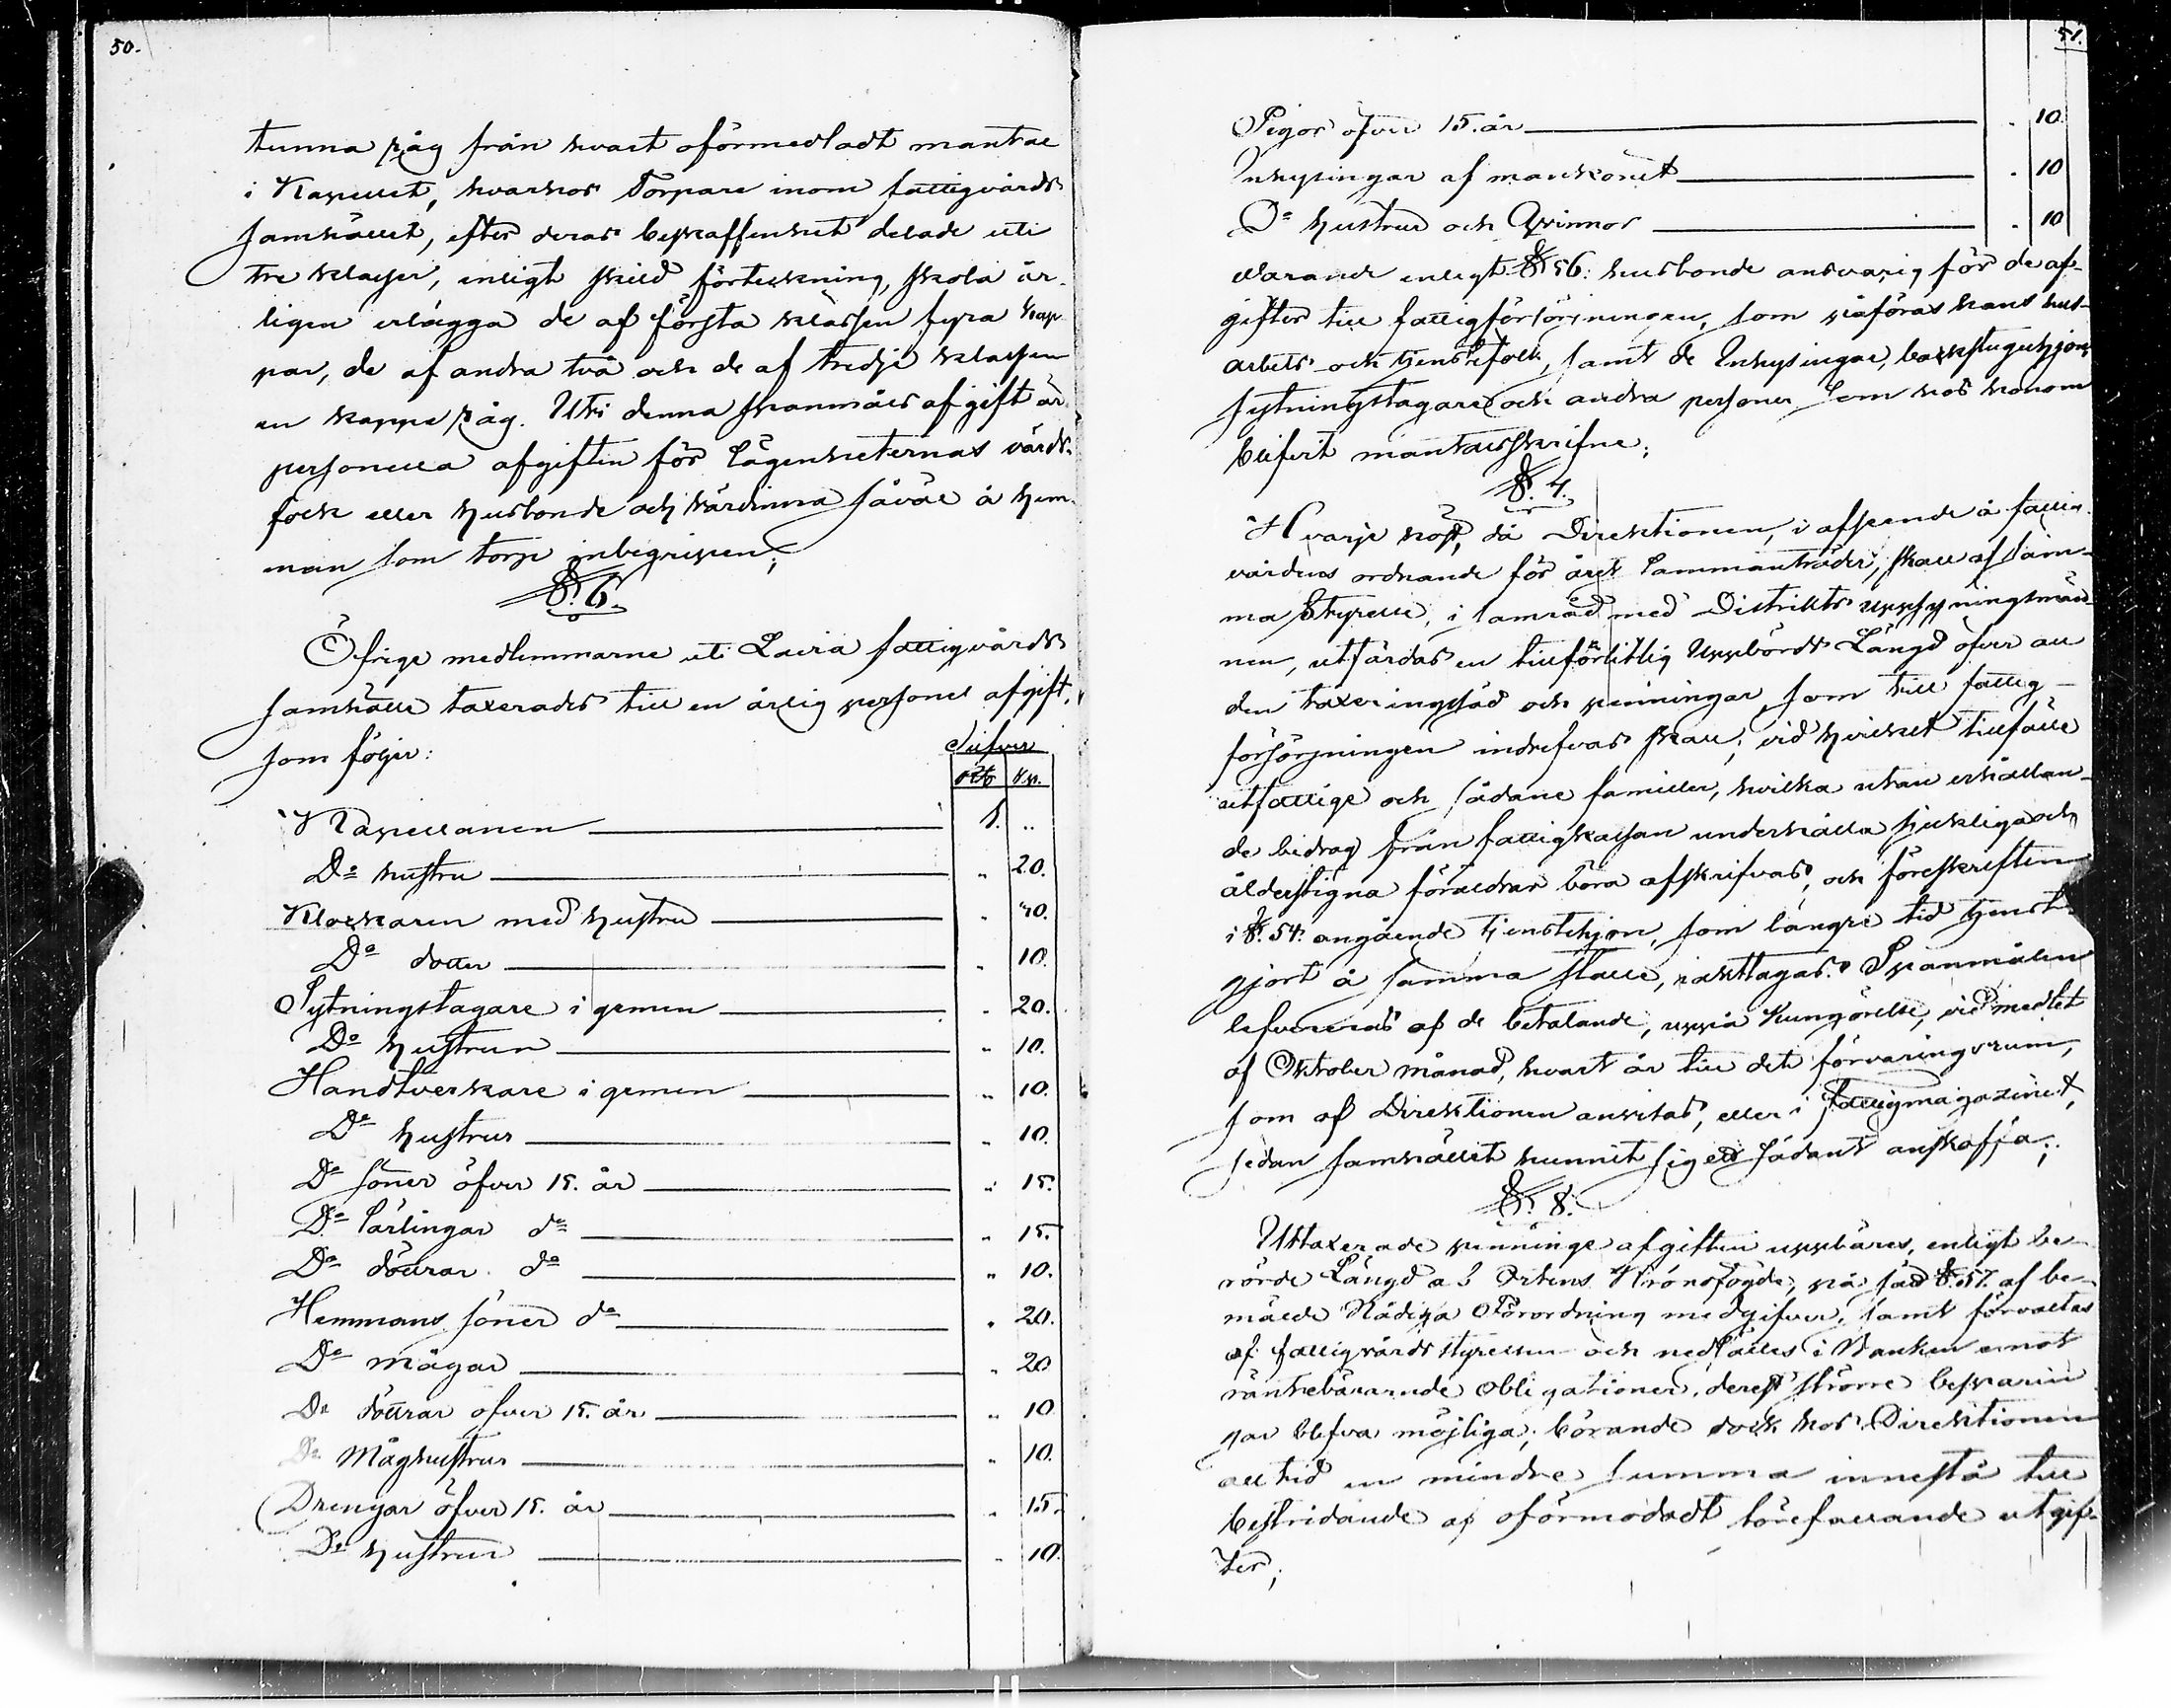 50.
tunna råg från hvart oförmedladt mantal
i Kapellet, hvarhos Torpare inom fattigvårds
samhället, efter deras beskaffenhet delade uti
tre klasser, enligt skild förteckning, skola år-
ligen erlägga de af första klassen fyra kap-
par, de af andra två och de af tredje klassen
en kappe råg. Uti denna spanmåls afgift är
personella afgiften för lägenheternas värds-
folk eller husbonde och värdinna såväl å hem-
man som torp inbegripen;
§. 6.
Öfrige medlemmarne uti Lavia fattigvårds
samhälle taxerades till en årlig personel afgift,
som följer:
Silfver
Kp.
Kapellanen 1. ..
Do hustru " 20.
Klockaren med hustru " 40.
Do dotter " 10.
Sytningstagare i gemen " 20.
Do hustrur " 10.
Handtverkare i gemen " 10.
Do hustrur " 10.
Do söner öfver 15. år " 15.
Do lärlingar do " 15.
Do döttrar do " 10.
Hemmans söner do " 20.
Do mågar " 20
Do döttrar öfver 15. år " 10
Do Måghustrur " 10.
Drengar öfver 15. år " 15.
Do hustrur " 10.
51.
Pigor öfver 15. år " 10.
Inhysingar af mankönet " 10
Do hustrur och Qvinnor " 10
varande enligt § 56: husbonde ansvarig för de af-
gifter till fattigförsörjningen, som påföras hans hus-
arbets- och tjenstefolk, samt de Inhysingar, backstuguhjon,
sytningstagare och andra personer som hos honom
blifvit mantalsskrifne;
§. 7.
Hvarje höst, då Direktionen, i afseende å fattig-
vårdens ordnande för året sammanträder, skall af sam-
ma Styrelse, i samråd med Distrikts uppsyningsmän-
nen, utfärdas en tillförlitlig Uppbörds Längd öfver all
den taxeringssäd och penningar, som till fattig-
försörjningen indrifvas skall; vid hvilket tillfälle
utfattige och sådane familler, hvilka utan erhållan-
de bidrag från fattigkassan underhålla sjukliga och
ålderstigna föräldrar böra afskrifvas, och föreskriften
i §. 54. angående tjenstehjon, som längre tid tjenst-
gjort å samma ställe, iakttagas. Spanmålen
lefvereras af de betalande, uppå kungörelse, vid medlet
af Oktober månad, hvart år till det förvaringsrum,
som af Direktionen anvisas, eller i fattigmagazinet,
sedan samhället hunnit sig ett sådant anskaffa;
§. 8.
Uttaxerade penninge afgiften uppbäres, enligt be-
rörde Längd af Ortens Kronofogde, på sätt §. 57. af be-
mälde Nådiga Förordning medgifver, samt förvaltas
af fattigvårds styrelsen och nedsättes i Banken emot
räntebärande obligationer, derest större besparin
gar blifva möjliga; börande dock hos Direktionen
alltid en mindre summa innestå till
bestridande af oförmodadt förefallande utgif-
ter;